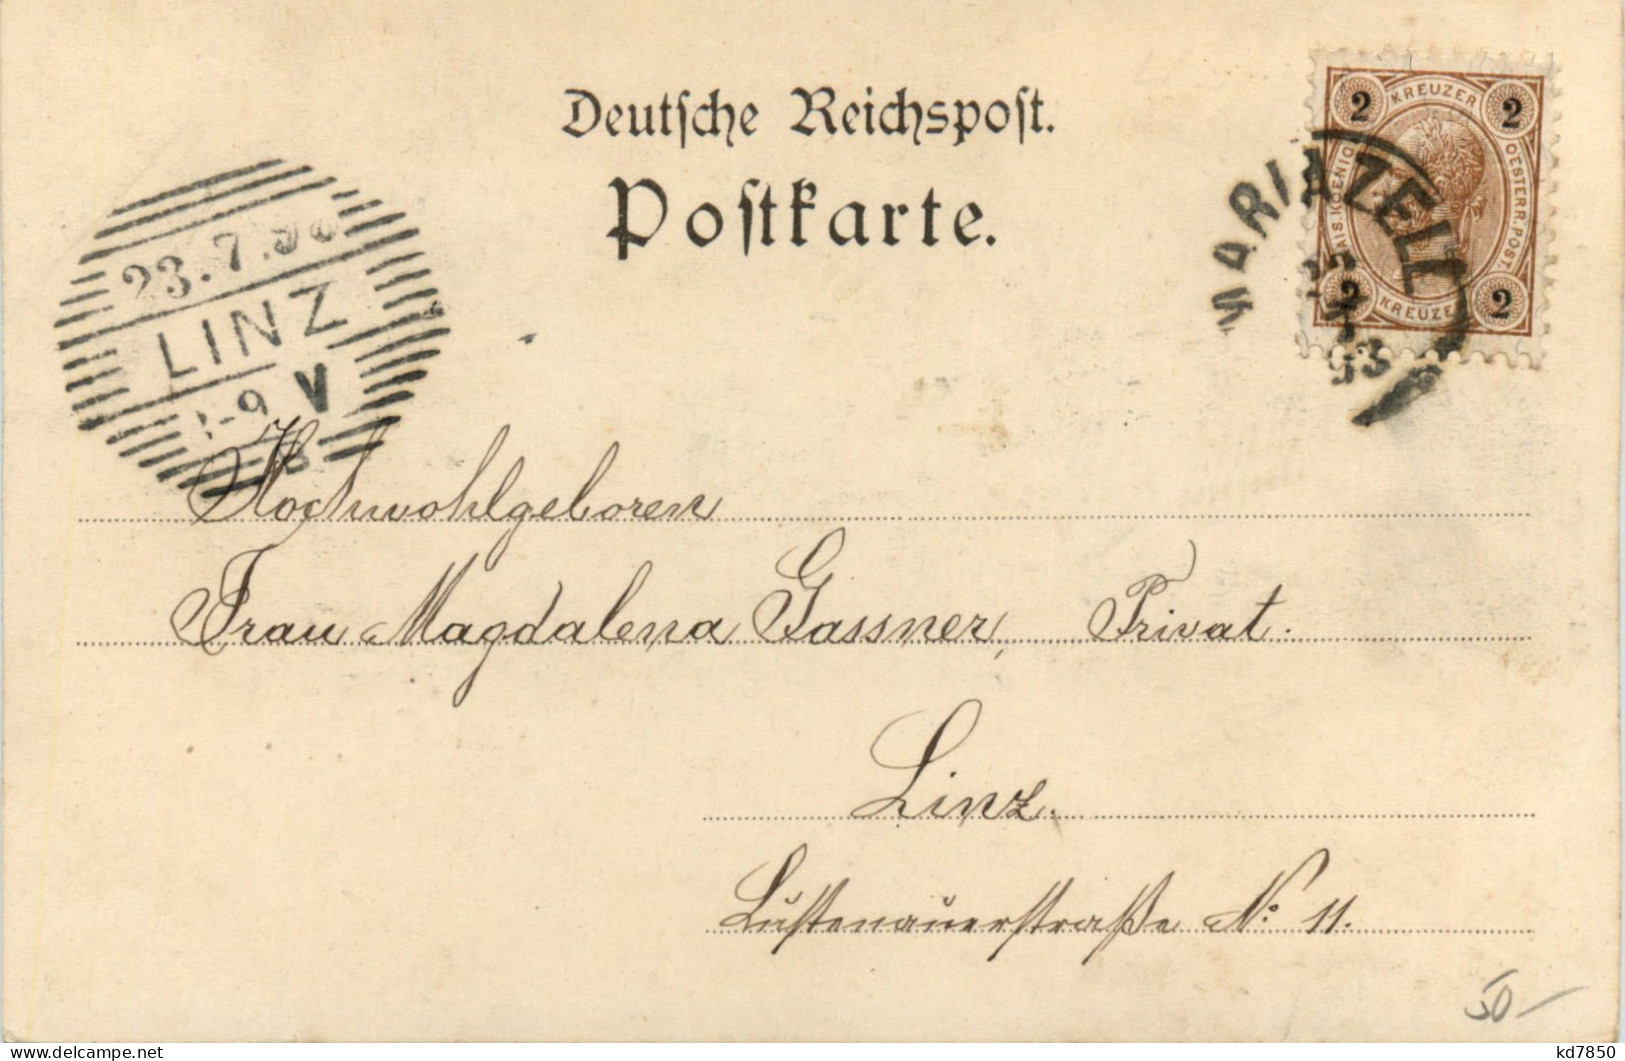 Deutsche Reichspost.
Postkarte.
2 KREUZER 2
KAIS. KOENIGL. OESTERR. POST.
2 KREUZER 2
MARIAZELL
23.7.98
LINZ
-9 V
Hochwohlgeboren
Frau Magdalena Gassner, Privat.
Linz.
Lustenauerstraße No. 11.
50-
kd7850